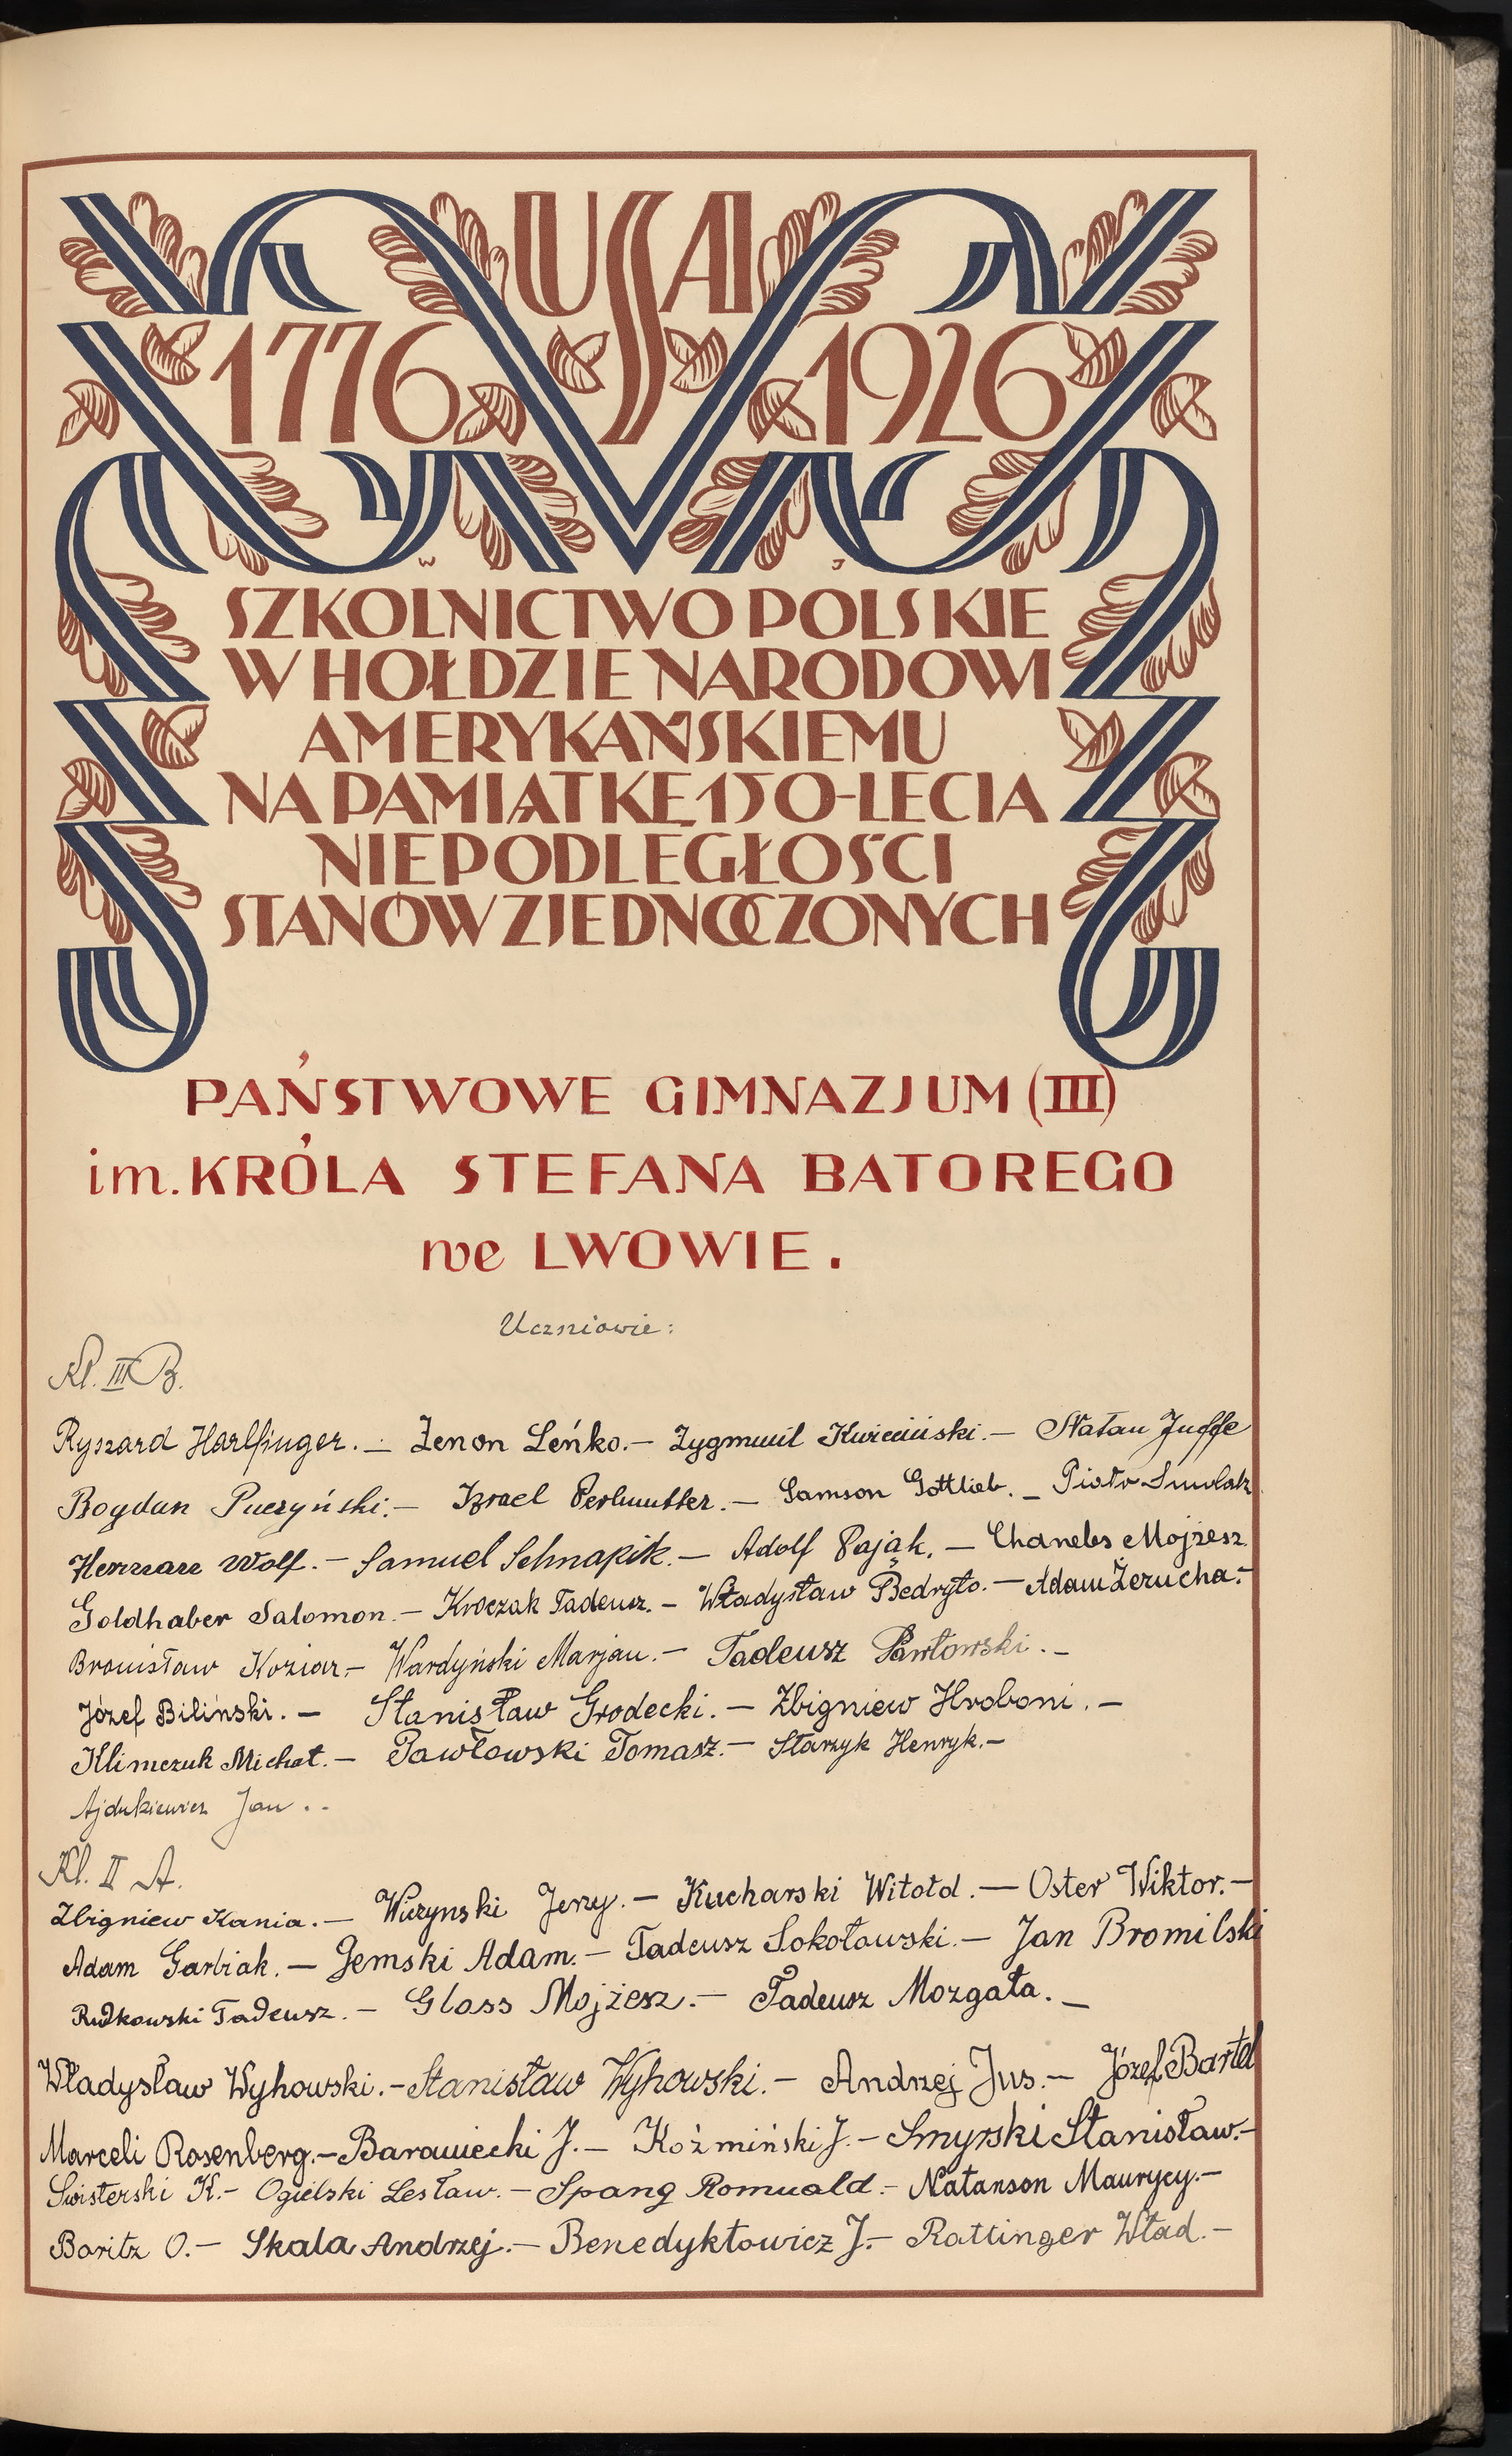 USA
1776 1926
W J
SZKOLNICTWO POLSKIE
W HOŁDZIE NARODOWI
AMERYKAŃSKIEMU
NA PAMIĄTKĘ 150-LECIA
NIEPODLEGŁOŚCI
STANÓW ZJEDNOCZONYCH
PAŃSTWOWE GIMNAZJUM (III)
im. KRÓLA STEFANA BATOREGO
we LWOWIE.
Uczniowie:
Kl. III B.
Ryszard Harlfinger. — Zenon Leńko. — Zygmunt Kwieciński. — Natan Juffe
Bogdan Puczyński. — Izrael Perlmutter. — Samson Gottlieb. — Piotr
Herman Wolf. — Samuel Schnapik. — Adolf Pająk. — Chaneles Mojżesz
Goldhaber Salomon. — Kroczak Tadeusz. — Władysław Bedryło. — Adam Żerucha. —
Bronisław Koziar. — Wardyński Marjan. — Tadeusz Pawłowski. —
Józef Biliński. — Stanisław Grodecki. — Zbigniew Hroboni. —
Klimczuk Michał. — Pawłowski Tomasz. — Starzyk Henryk. —
Ajdukiewicz Jan. -
Kl. II A.
Zbigniew Kania. — Jerzy. — Kucharski Witołd. — Oster Wiktor. —
Adam Garbiak. — Jemski Adam. — Tadeusz Sokołowski. — Jan Bromilski
Rudkowski Tadeusz. — Glass Mojżesz. — Tadeusz Mozgała. —
Władysław Wyhowski. — Stanisław Wyhowski. — Andrzej Jus. — Józef Bartel
Marceli Rosenberg. — Barawiecki J. — Koźmiński J. — Smyrski Stanisław. —
Świsterski K. — Ogielski Lesław. — Spang Romuald. — Natanson Maurycy. —
Baritz O. — Skala Andrzej. — Benedyktowicz J. — Rattinger Wład. —